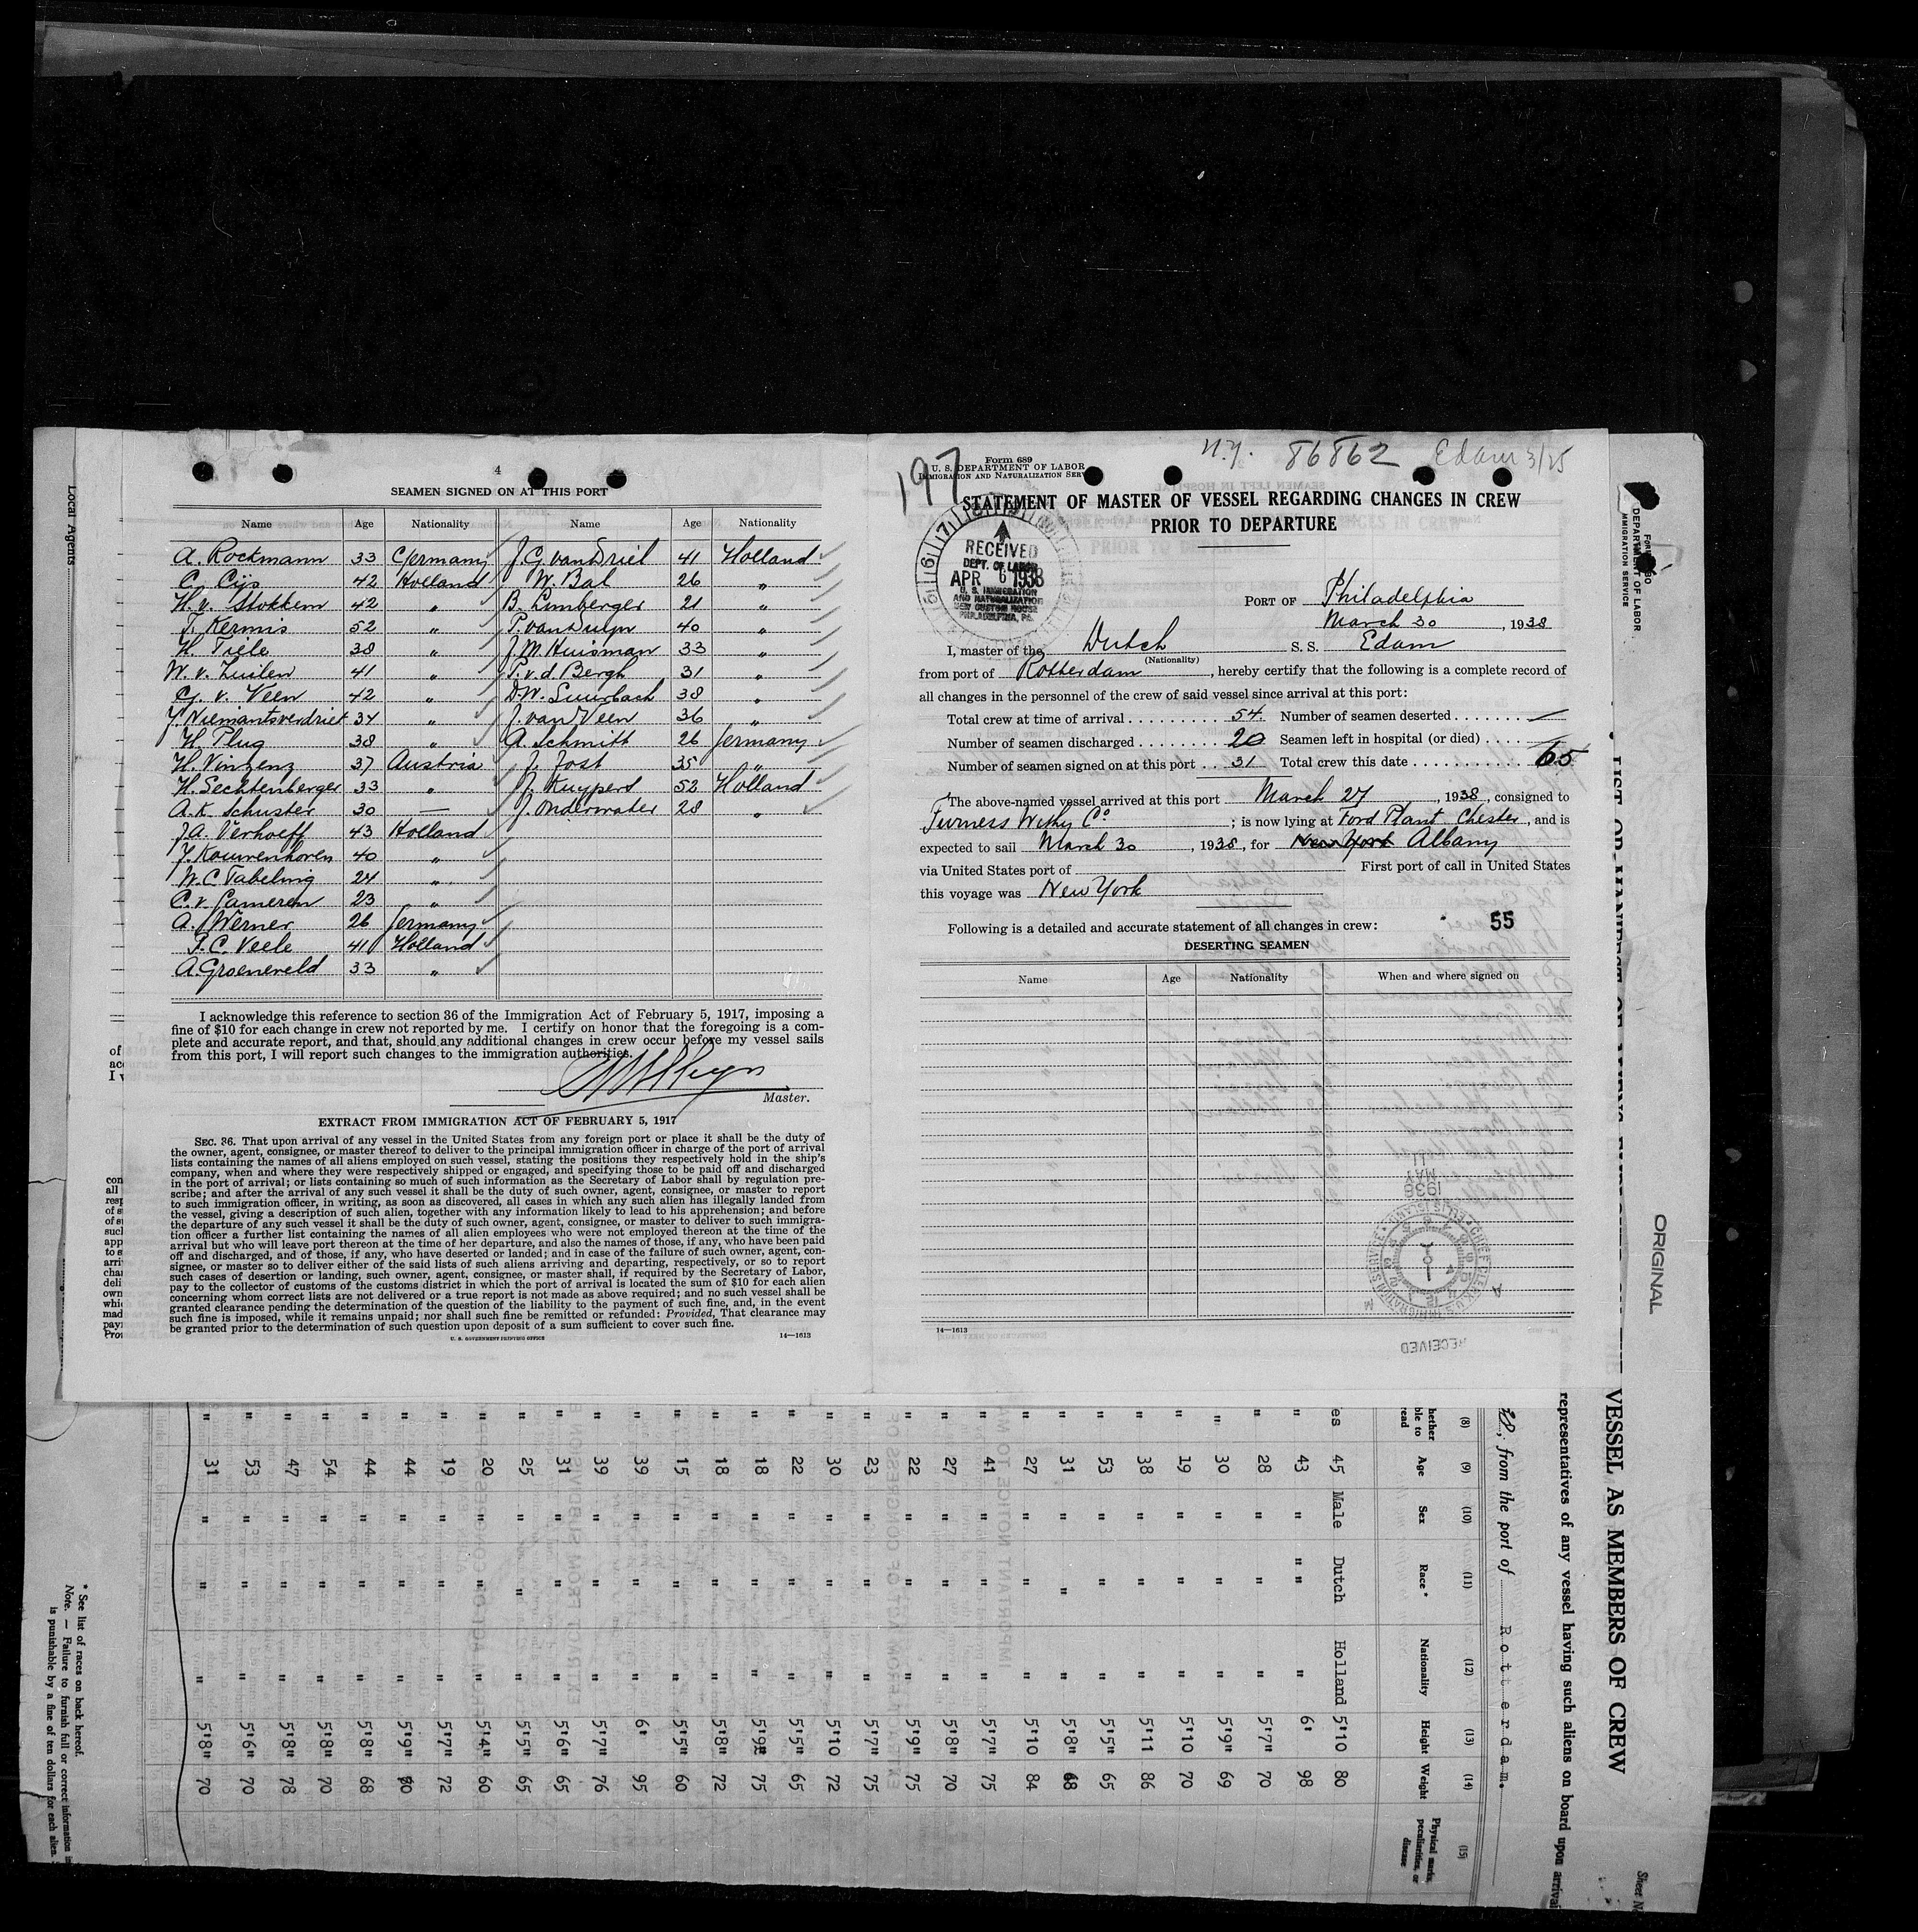 4
SEAMEN SIGNED ON AT THIS PORT
Name Age Nationality Name Age Nationality
A. Rockmann 33 Germany J. G. van Driel 41 Holland
G. Cijs 42 Holland W. Bal 26 "
H. v. Stokkem 42 " B. Limberger 21 "
T. Kermis 52 " P. van Duijn 40 "
H. Tiele 38 " J. M. Huisman 33 "
W. v. Zuilen 41 " P. v. d. Bergh 31 "
G. v. Veen 42 " D. W. Suurbach 38 "
J. Niemantsverdriet 34 " J. van Veen 36 "
H. Plug 38 " A. Schmitt 26 Germany
H. Vinzenz 37 Austria J. Jost 35 "
H. Sechtenberger 33 " J. Kuypers 52 Holland
A. K. Schuster 30 — J. Onderwater 28 "
J. A. Verhoeff 43 Holland
J. Kouwenhoven 40 "
W. C. Tabeling 24 "
C. v. Lameren 23 "
A. Werner 26 Germany
P. C. Veele 41 Holland
A. Groeneveld 33 "
I acknowledge this reference to section 36 of the Immigration Act of February 5, 1917, imposing a
fine of $10 for each change in crew not reported by me. I certify on honor that the foregoing is a com-
plete and accurate report, and that, should any additional changes in crew occur before my vessel sails
from this port, I will report such changes to the immigration authorities.
Master.
EXTRACT FROM IMMIGRATION ACT OF FEBRUARY 5, 1917
SEC. 36. That upon arrival of any vessel in the United States from any foreign port or place it shall be the duty of
the owner, agent, consignee, or master thereof to deliver to the principal immigration officer in charge of the port of arrival
lists containing the names of all aliens employed on such vessel, stating the positions they respectively hold in the ship's
company, when and where they were respectively shipped or engaged, and specifying those to be paid off and discharged
in the port of arrival; or lists containing so much of such information as the Secretary of Labor shall by regulation pre-
scribe; and after the arrival of any such vessel it shall be the duty of such owner, agent, consignee, or master to report
to such immigration officer, in writing, as soon as discovered, all cases in which any such alien has illegally landed from
the vessel, giving a description of such alien, together with any information likely to lead to his apprehension; and before
the departure of any such vessel it shall be the duty of such owner, agent, consignee, or master to deliver to such immigra-
tion officer a further list containing the names of all alien employees who were not employed thereon at the time of the
arrival but who will leave port thereon at the time of her departure, and also the names of those, if any, who have been paid
off and discharged, and of those, if any, who have deserted or landed; and in case of the failure of such owner, agent, con-
signee, or master so to deliver either of the said lists of such aliens arriving and departing, respectively, or so to report
such cases of desertion or landing, such owner, agent, consignee, or master shall, if required by the Secretary of Labor,
pay to the collector of customs of the customs district in which the port of arrival is located the sum of $10 for each alien
concerning whom correct lists are not delivered or a true report is not made as above required; and no such vessel shall be
granted clearance pending the determination of the question of the liability to the payment of such fine, and, in the event
such fine is imposed, while it remains unpaid; nor shall such fine be remitted or refunded: Provided, That clearance may
be granted prior to the determination of such question upon deposit of a sum sufficient to cover such fine.
U. S. GOVERNMENT PRINTING OFFICE 14—1613
N.Y. 86862 Edam 3/25
197
Form 689
U. S. DEPARTMENT OF LABOR
IMMIGRATION AND NATURALIZATION SERV
STATEMENT OF MASTER OF VESSEL REGARDING CHANGES IN CREW
PRIOR TO DEPARTURE
RECEIVED
DEPT. OF LABOR
APR 6 1938
U. S. IMMIGRATION
AND NATURALIZATION
NEW CUSTOM HOUSE
PHILADELPHIA, PA.
PORT OF Philadelphia
March 30, 1938
I, master of the Dutch S. S. Edam
(Nationality)
from port of Rotterdam, hereby certify that the following is a complete record of
all changes in the personnel of the crew of said vessel since arrival at this port:
Total crew at time of arrival 54 Number of seamen deserted —
Number of seamen discharged 20 Seamen left in hospital (or died) —
Number of seamen signed on at this port 31 Total crew this date 65
The above-named vessel arrived at this port March 27, 1938, consigned to
Furness Withy Co; is now lying at Ford Plant Chester, and is
expected to sail March 30, 1938, for New York Albany
via United States port of First port of call in United States
this voyage was New York
Following is a detailed and accurate statement of all changes in crew: 55
DESERTING SEAMEN
Name Age Nationality When and where signed on
1938
MAY
11
14—1613
RECEIVED
Local Agents
DEPARTMENT OF LABOR
IMMIGRATION SERVICE
ORIGINAL
VESSEL AS MEMBERS OF CREW
representatives of any vessel having such aliens on board upon arrival
, from the port of Rotterdam.
(8) (9) (10) (11) (12) (13) (14) (15)
Age Sex Race * Nationality Height Weight Physical marks, peculiarities, or disease
es 45 Male Dutch Holland 5'10 80
" 43 " " " 6' 98
" 28 " " " 5'7" 70
" 30 " " " 5'9" 69
" 19 " " " 5'10 70
" 38 " " " 5'11 86
" 53 " " " 5'5" 65
" 31 " " " 5'8" 68
" 27 " " " 5'10 84
" 41 " " " 5'7" 75
" 27 " " " 5'8" 70
" 22 " " " 5'9" 75
" 23 " " " 5'7" 75
" 30 " " " 5'10 72
" 22 " " " 5'5" 65
" 18 " " " 5'9" 75
" 18 " " " 5'8" 72
" 15 " " " 5'5" 60
" 39 " " " 6' 95
" 39 " " " 5'7" 76
" 31 " " " 5'6" 65
" 25 " " " 5'5" 65
" 20 " " " 5'4" 60
" 19 " " " 5'7" 72
" 44 " " " 5'9" 80
" 44 " " " 5'8" 68
" 54 " " " 5'8" 70
" 47 " " " 5'8" 78
" 53 " " " 5'6" 70
" 31 " " " 5'8" 70
* See list of races on back hereof.
Note. — Failure to furnish full or correct information in
is punishable by a fine of ten dollars for each alien.